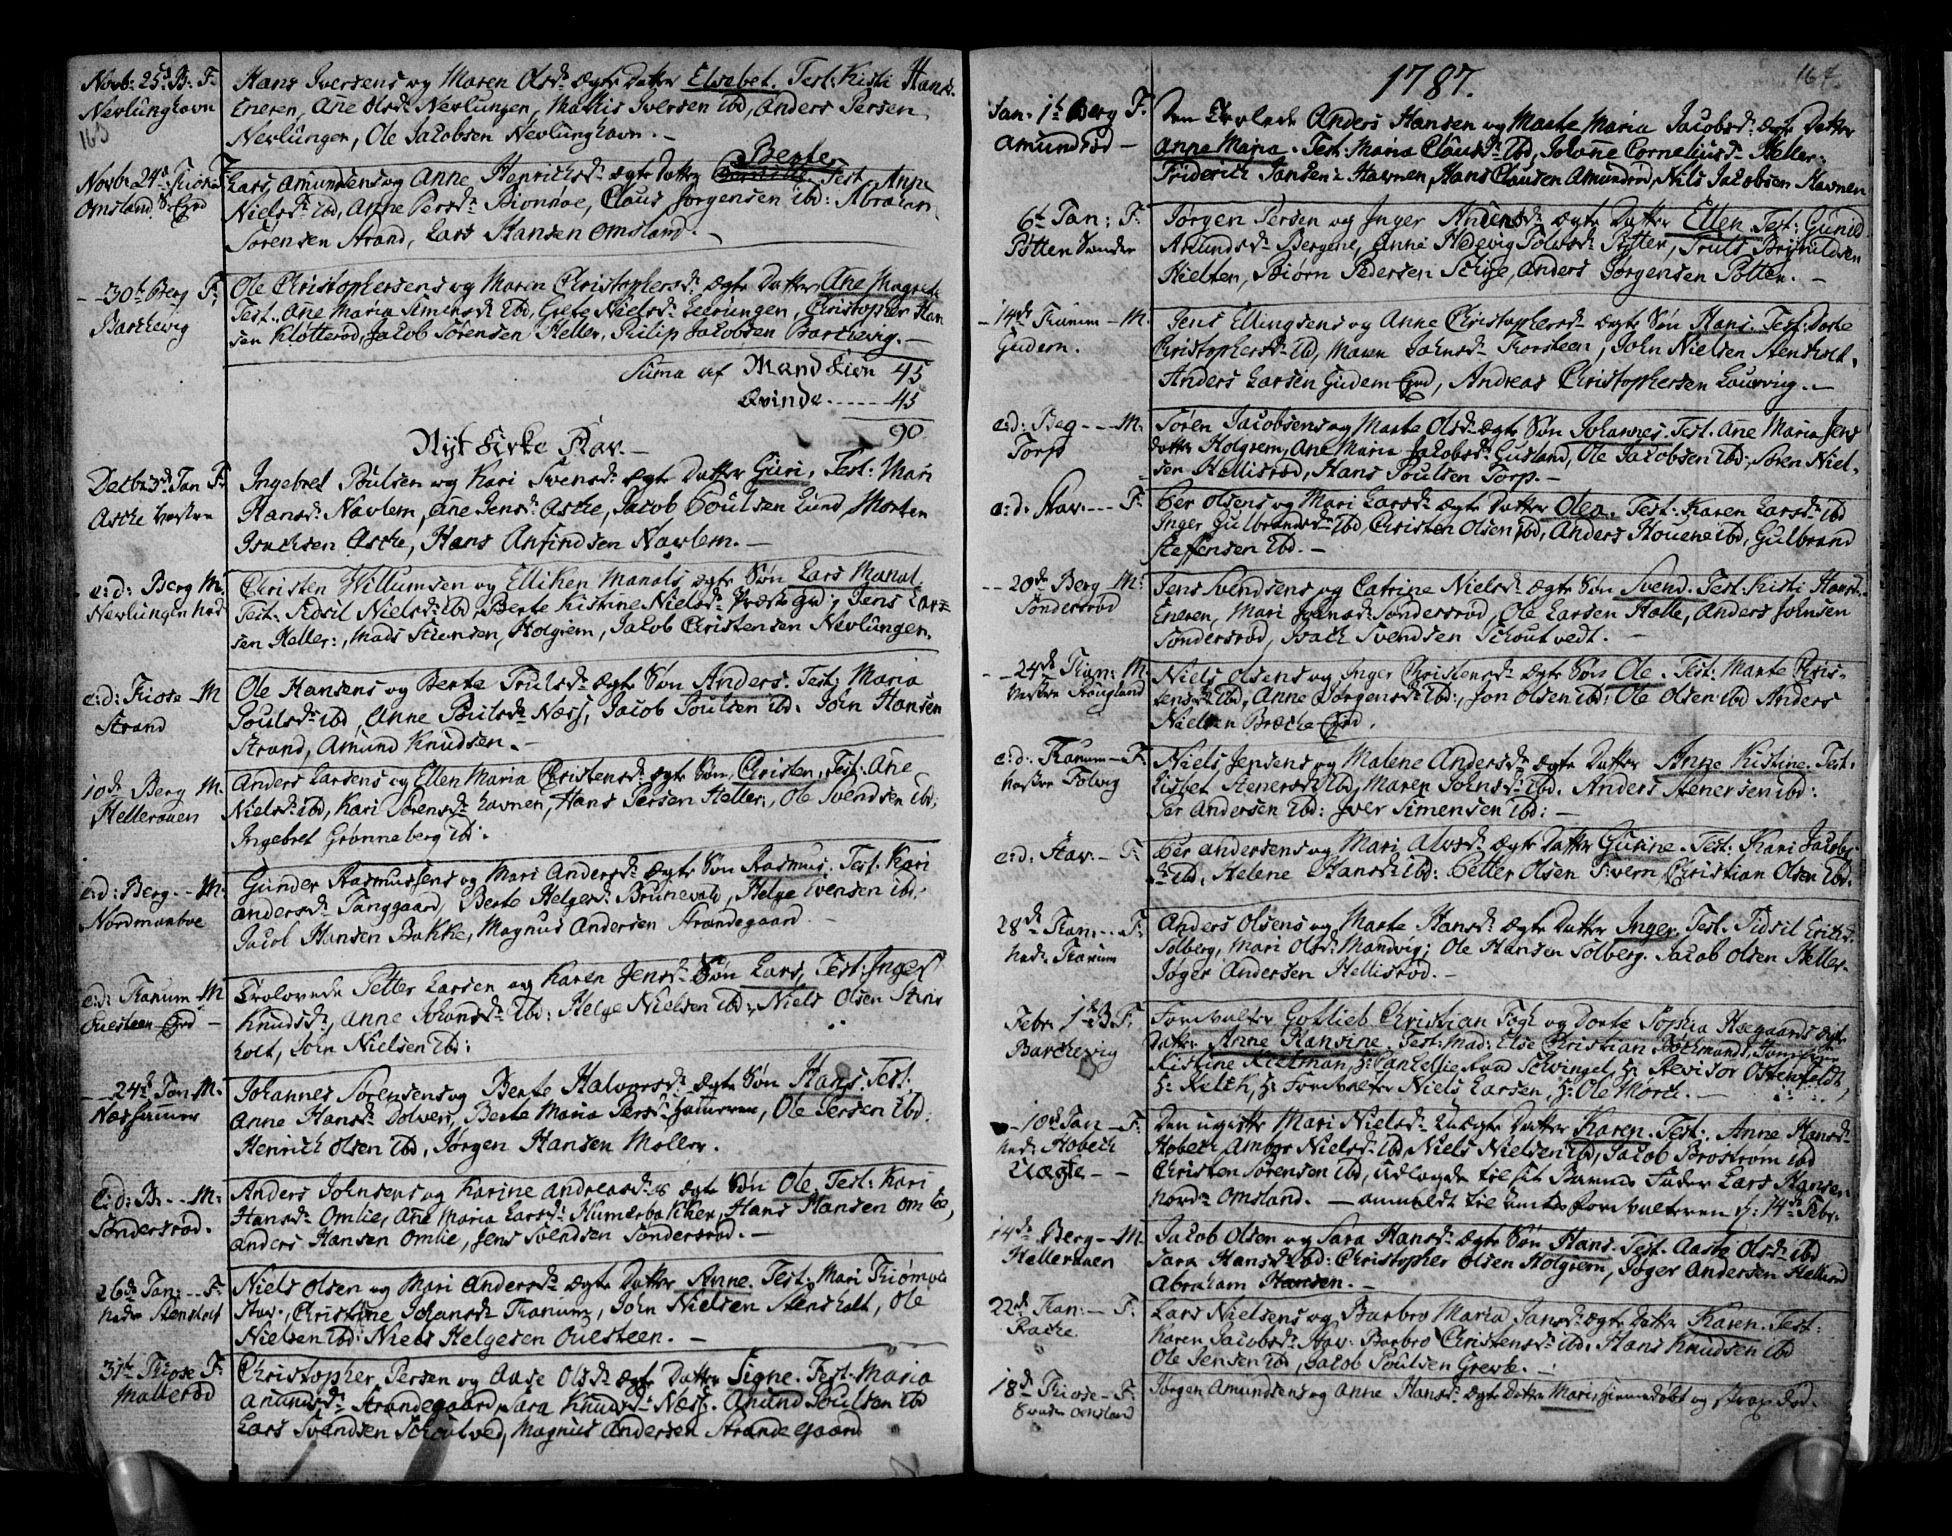 163
Novb: 25d B: F.
Nevlunghavn
Hans Iversens og Maren Olsd: Ægte Datter Elsebet. Test: Kisti Hansd:
Eneren, Añe Olsd: Nevlungen, Mathis Iversen ibd, Anders Persen
Nevlungen, Ole Jacobsen Nevlunghavn. –
Berte
Omsland
Lars Amundsens og Anne Henrichsd: Ægte Datter Test: Anne
Nielsd: ibd, Anne Persd: Bionnøe, Claus Jørgensen ibd: Abraham
Sørensen Strand, Lars Hansen Omsland. –
– – 30te Berg F:
Barchevig
Ole Christophersens og Maren Christophersd: Ægte Datter Ane Magrete
Test: Ane Maria Simensd: ibd, Grete Nielsd: Leerungen, Christopher Han
sen Klotterød, Jacob Sørensen Heller, Philip Jacobsen Barchevig. –
Suma af Mandkiøn 45
Qvinde ----- 45
90
Nyt Kirke Aar. –
Decbr 3d Tan F:
Asche
Ingebret Poulsen og Kari Svensd: Ægte Datter Guri. Test: Mari
Hansd: Navlem, Añe Jensd: Asche, Jacob Poulsen Lund, Morten
Isachsen Asche, Hans Anfindsen Navlem. –
e:d: Berg M.
Nevlungen
Christen Willumsen og Elliken Manals, Ægte Søn Lars Manal
Test: Sidsil Nielsd: ibd, Berte Kistine Nielsd: Jens Lar=
sen Heller:, Mads Holgiem, Jacob Christensen Nevlungen.
e:d: Kiose – M
Strand
Ole Hansens og Berte Trulsd: Ægte Søn Anders. Test: Maria
Poulsd: ibd, Anne Poulsd: Næss, Jacob Poulsen ibd. John Hansen
Strand, Amund Knudsen. –
10de Berg M.
Hellerauen
Anders Larsens og Ellen Maria Christensd: Ægte Søn, Christen, Test: Ane
Nielsd: ibd, Kari Sørensd: Havnen, Hans Persen Heller:, Ole Svendsen ibd,
Ingebret Grønneberg ibd.
e:d: Berg. – M.
Gunder Rasmussens og Mari Andersd: Ægte Søn Rasmus. Test: Kari
Andersd: Berte Helgesd: Brunevald, Helge Ivensen ibd.
Jacob Hansen Bakke, Magnus Andersen Strandegaard –
e:d: Tanum – M
Ouesteen –
Trolovede Petter Larsen og Karen Jensd: Søn Lars, Test: Inger
Knudsd:, Anne Johansd: ibd: Helge Nielsen ibd:, Niels Olsen Stens
holt, John Nielsen ibd:
– – 24de Tan M.
Johannes Sørensens og Berte Halvorsd: Ægte Søn Hans. Test.
Anne Hansd: Dolven, Berte Maria Persd: Ole Persen ibd:
Henrich Olsen ibd, Jørgen Hansen Møller.
e:d: B. – – M:
Søndersrød.
Anders Johnsens og Karine Andreasd: Ægte Søn Ole. Test: Kari
Hansd: Omlie, Añe Maria Larsd: Hans Hansen Omlie,
Anders Hansen Omlie, Jens Svendsen Søndersrød. –
26de Tan: – F.
Nedre Stensholt
Niels Olsen og Mari Andersd: Ægte Datter Anne. Test: Mari
Stav:, Christine Johansd: Tanum, John Nielsen Stensholt, Ole
Nielsen ibd: Niels Helgesen Ouesteen. –
31te Kiose F:
Mallerød
Christopher Persen og Aase Olsd: Ægte Datter Signe. Test: Maria
Amunsd: Strandegaard, Sara Knudsd: Næss. Amund Poulsen ibd
Lars Svendsen Magnus Andersen Strandegaard
164.
1787.
Jan: 1te Berg F.
Amundrød –
Den Trolede Anders Hansen og Marte Maria Jacobsd: Ægte Datter
Anne Maria. Test: Maria Clausd: ibd, Johañe Corneliusd: Heller:
Friderich Jansen: Havnen, Hans Clausen Amundrød, Nils Jacobsen Havnen
6te Tan: F:
Jørgen Persen og Inger Andersd: Ægte Datter Ellen. Test: Gunild
Amundsd: Bergene, Anne Hedevig Truls
Nielsen, Biørn Pedersen Anders Jørgensen Potten. –
– 14de Tanum – M.
Gudem.
Jens Ellingsens og Anne Christophersd: Ægte Søn Hans. Test: Dorte
Christophersd: ibd, Maren Johnsd: Torsteen, John Nielsen Stensholt.
Anders Larsen Gudem Andreas Christophersen Laurvig. –
e:d: Beg – – M.
Torp
Søren Jacobsens og Marte Olsd: Ægte Søn Johannes. Test: Ane Maria Jens
datter Holgiem, Ane Maria Jacobsd: Gusland, Ole Jacobsen ibd:, Søren Niel-
sen Hellisrød, Hans Poulsen Torp. –
e:d: Stav. – – F.
Per Olsens og Mari Larsd: Ægte Datter Olea. Test: Karen Larsd: ibd
Inger Gulbrandsd: ibd, Christen Olsen ibd, Anders Houene ibd, Gulbrand
Steffensen ibd. –
– – 20de Berg – M:
Søndersrød
Jens Svendsens og Catrine Nielsd: Ægte Søn Svend. Test: Kisti Hansd:
Eneren, Mari Søndersrød, Ole Larsen Halle, Anders Johnsen
Søndersrød, Isach Svendsen
– – 24de Tan: M
Niels Olsens og Inger Christensd: Ægte Søn Ole. Test: Marte Chris-
tensd: ibd, Anne Jørgensd: ibd:, Jon Olsen ibd: Ole Olsen ibd Anders
Nielsen
e:d: Tanum – F.
Niels Jensens og Malene Andersd: Ægte Datter Anne Kistine. Test.
Lisbet Stenersd: ibd, Maren Johnsd: ibd. Anders Stenersen ibd:
Per Andersen ibd: Iver Simensen ibd: –
e:d. Stav. – F.
Per Andersens og Mari Alvsd: Ægte Datter Gurine. Test: Kari Jacobs
d: ibd, Helene Hansd: ibd: Petter Olsen Christian Olsen ibd.
28de Tan. – F.
Ned: Tanum
Anders Olsens og Marte Hansd: Ægte Datter Inger. Test: Sidsil Ericsd:
Solberg, Mari Olsd: Manvig; Ole Hansen Solberg. Jacob Olsen Heller.
Joger Andersen Hellisrød. –
Febr. 1te B. F.
Barchevig
Forvalter Gotlieb Christian Fogh og Dorte Sophia Hægaards Ægte
Datter Anne Hansine. Test: Mad: Else Christian Jomfrue
Kistine Kielman, H: Cancellieraad Schwingel, H: Revisor Ostenfeldt,
H: Kelch, H: Forvalter Niels Larsen, H: Ole Mørch. –
– 10de Tan – F.
ned: Hobech
Uægte – –
Den ugifte Mari Nielsd: Uægte Datter Karen. Test: Anne Hansd:
Hobech, Ambor Nielsd: ibd, Niels Nielsen ibd, Jacob Brostrøm ibd
Christen Sørensen ibd, udlagde til sit Barns Fader Lars Hansen
Nord: Omsland. – anmeldt til Amtsforvalteren d: 14de Febr:
14de Berg – M.
Hellerauen
Jacob Olsen og Sara Hansd: Ægte Søn Hans. Test: Aaste Olsd: ibd
Sara Hansd: ibd: Christopher Olsen Holgiem, Joger Andersen Hellisrød
Abraham Hansen. –
22de Tan: – F.
Lars Nielsens og Barbro Maria Jansd: Ægte Datter Karen. Test:
Karen Jacobsd: Stav: Barbro Christensd: ibd. Hans Knudsen ibd
Ole Jensen ibd, Jacob Poulsen
18de Kiose – F.
Omsland
Jørgen Amundsens og Anne Hansd: Ægte Datter Mari, hiemmedøbt og strax død.